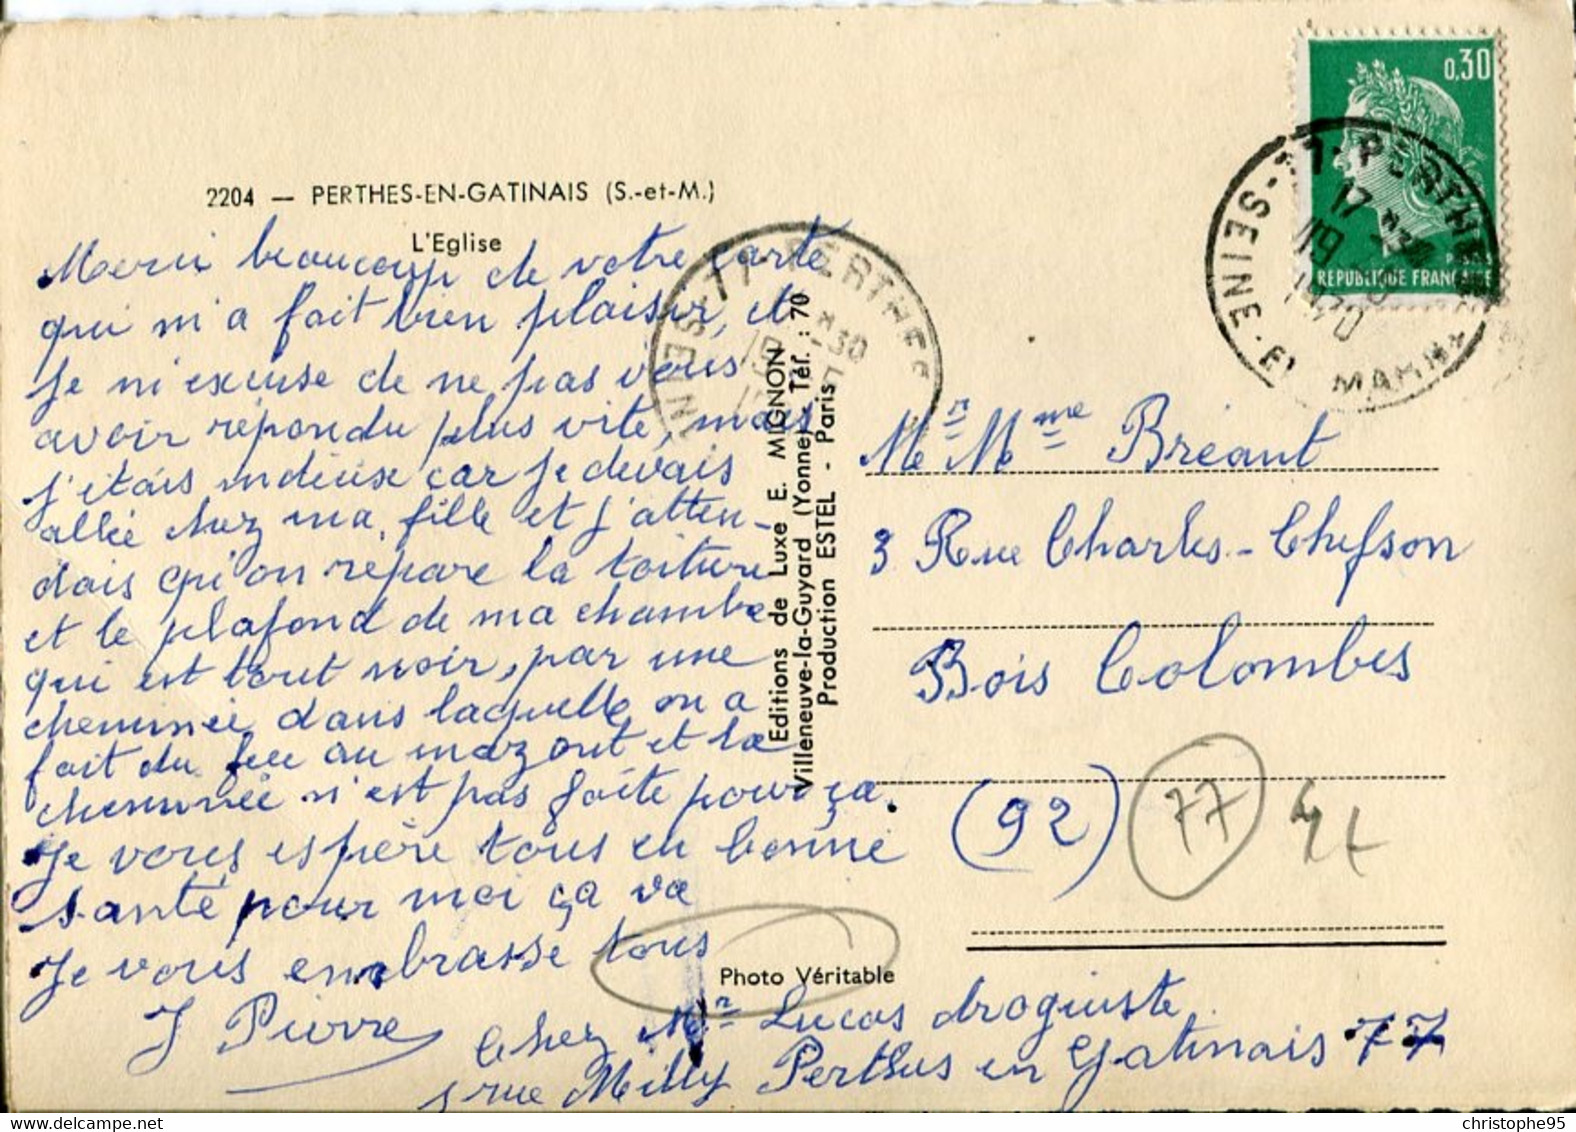 2204 — PERTHES-EN-GATINAIS (S.-et-M.)
L'Eglise
Merci beaucoup de votre carte
qui m'a fait bien plaisir, et
je m'excuse de ne pas vous
avoir répondu plus vite, mais
j'étais indécise car je devais
allée chez ma fille et j'atten-
dais qu'on répare la toiture
et le plafond de ma chambre
qui est tout noir, par une
cheminée dans laquelle on a
fait du feu au mazout et la
cheminée n'est pas faite pour ça.
Je vous espère tous en bonne
santé pour moi ça va
Je vous embrasse tous
J Pierre
Chez Mr Lucas droguiste
rue Milly Perthes en Gatinais 77
Editions de Luxe E. MIGNON
Villeneuve-la-Guyard (Yonne) Tél. : 70
Production ESTEL - Paris
Photo Véritable
0,30
REPUBLIQUE FRANÇAISE
77 - PERTHES
SEINE-ET-MARNE
17 H 30
1970
77 - PERTHES
SEINE
30
Mr Mme Bréant
3 Rue Charles-Chefson
Bois Colombes
(92)
77
christophe95